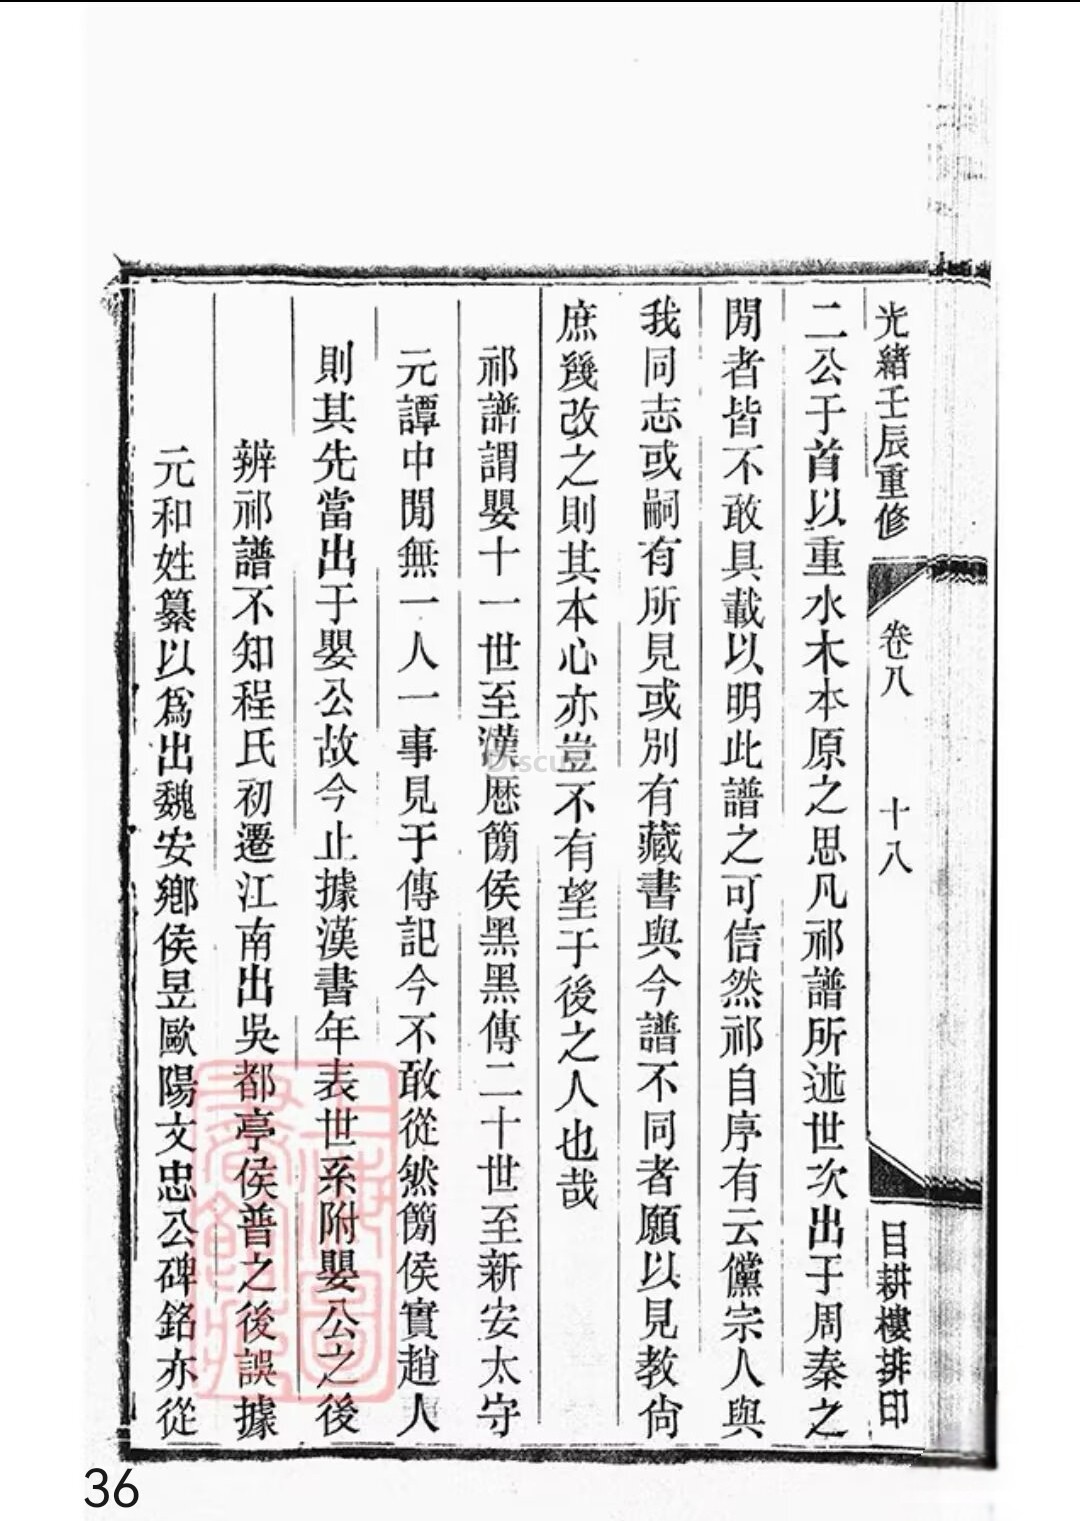 光緒壬辰重修 卷八 十八 目耕樓排印
二公于首以重水木本原之思凡祁譜所述世次出于周秦之
閒者皆不敢具載以明此譜之可信然祁自序有云儻宗人與
我同志或嗣有所見或別有藏書與今譜不同者願以見教尙
庶幾改之則其本心亦豈不有望于後之人也哉
祁譜謂嬰十一世至漢厯簡侯黑黑傳二十世至新安太守
元譚中閒無一人一事見于傳記今不敢從然簡侯實趙人
則其先當出于嬰公故今止據漢書年表世系附嬰公之後
辨祁譜不知程氏初遷江南出吳都亭侯普之後誤據
元和姓纂以爲出魏安鄕侯昱歐陽文忠公碑銘亦從
上海圖書館藏
Discuz!
36